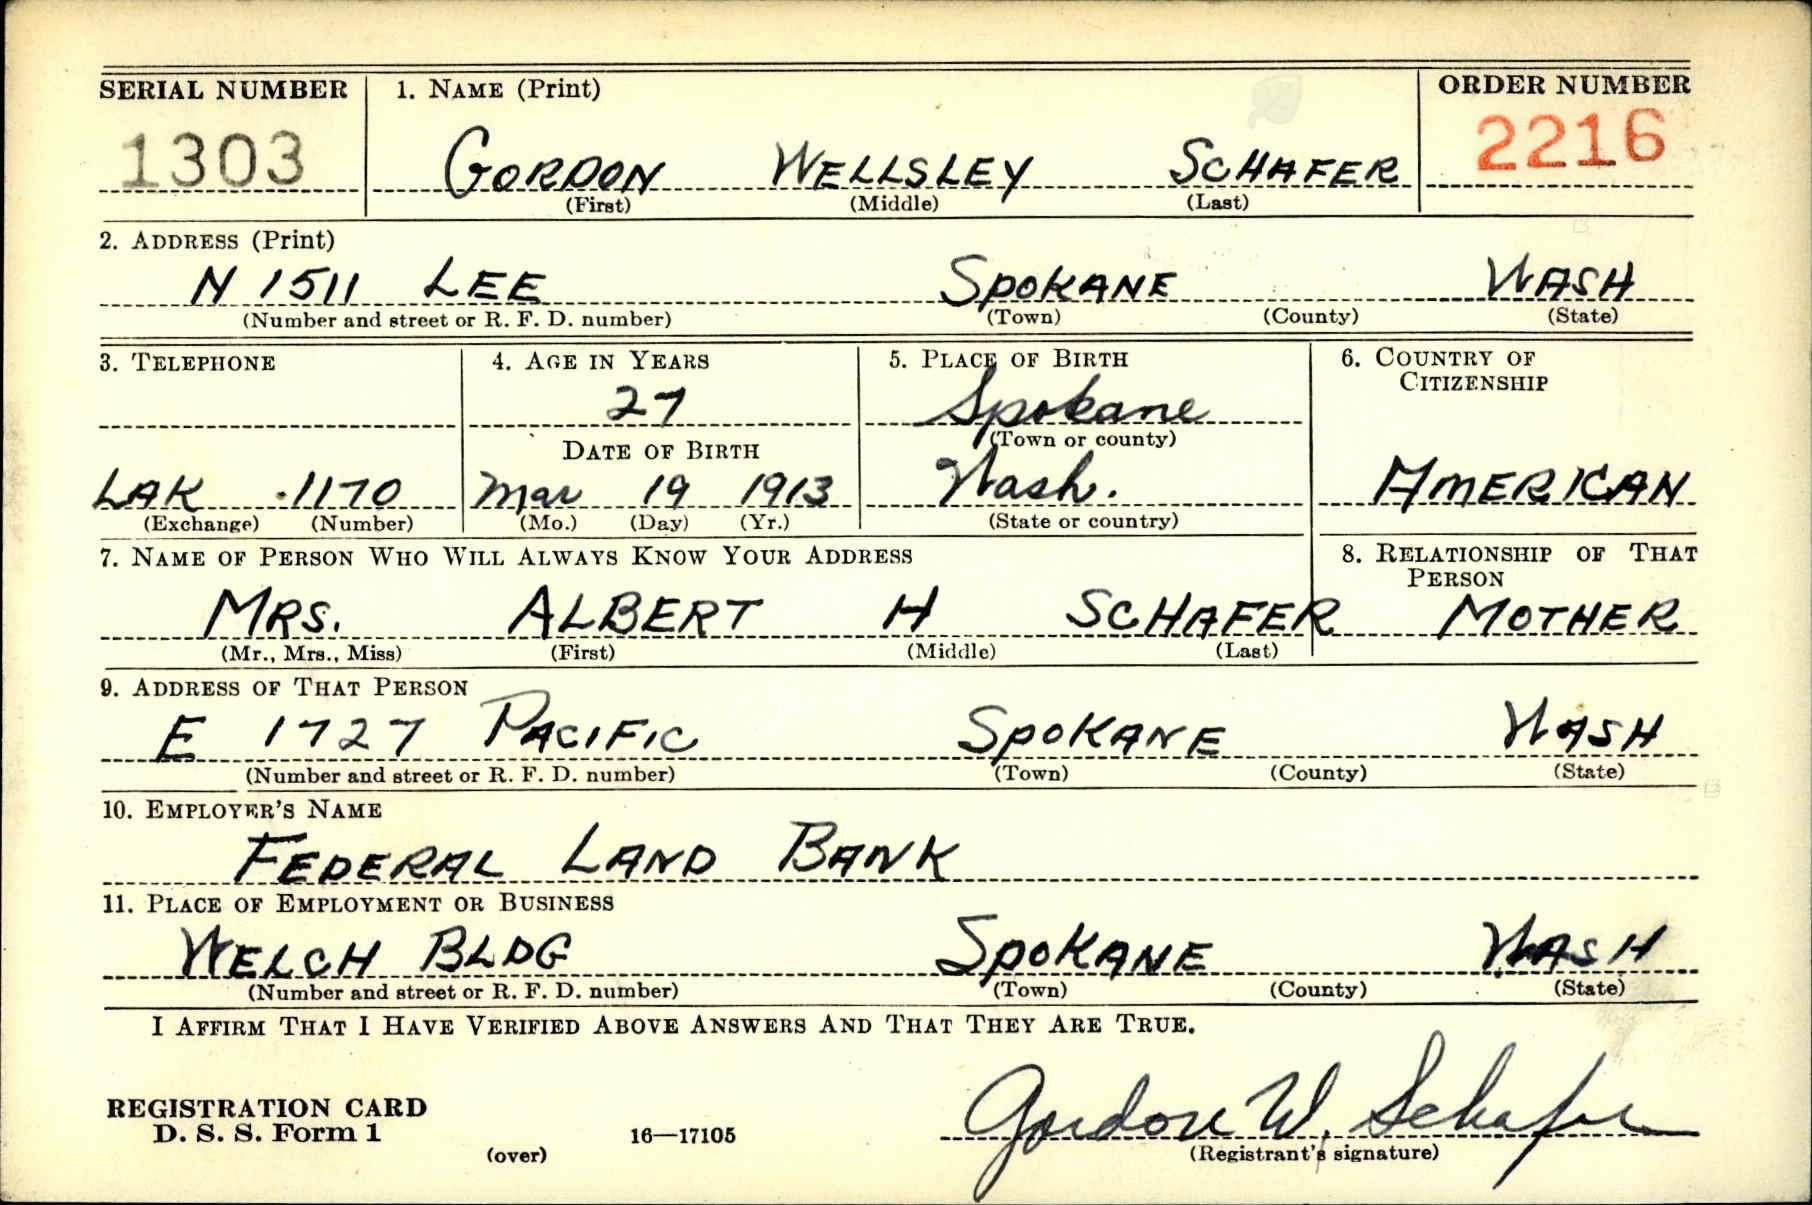 SERIAL NUMBER 1. NAME (Print) ORDER NUMBER
1303 GORDON WELLSLEY SCHAFER 2216
(First) (Middle) (Last)
2. ADDRESS (Print)
N 1511 LEE SPOKANE WASH
(Number and street or R. F. D. number) (Town) (County) (State)
3. TELEPHONE 4. AGE IN YEARS 5. PLACE OF BIRTH 6. COUNTRY OF
CITIZENSHIP
27 Spokane
(Town or county)
DATE OF BIRTH
LAK 1170 Mar 19 1913 Wash. AMERICAN
(Exchange) (Number) (Mo.) (Day) (Yr.) (State or country)
7. NAME OF PERSON WHO WILL ALWAYS KNOW YOUR ADDRESS 8. RELATIONSHIP OF THAT
PERSON
MRS. ALBERT H SCHAFER MOTHER
(Mr., Mrs., Miss) (First) (Middle) (Last)
9. ADDRESS OF THAT PERSON
E 1727 PACIFIC SPOKANE WASH
(Number and street or R. F. D. number) (Town) (County) (State)
10. EMPLOYER'S NAME
FEDERAL LAND BANK
11. PLACE OF EMPLOYMENT OR BUSINESS
WELCH BLDG SPOKANE WASH
(Number and street or R. F. D. number) (Town) (County) (State)
I AFFIRM THAT I HAVE VERIFIED ABOVE ANSWERS AND THAT THEY ARE TRUE.
REGISTRATION CARD
D. S. S. Form 1 16—17105 Gordon W. Schafer
(over) (Registrant's signature)